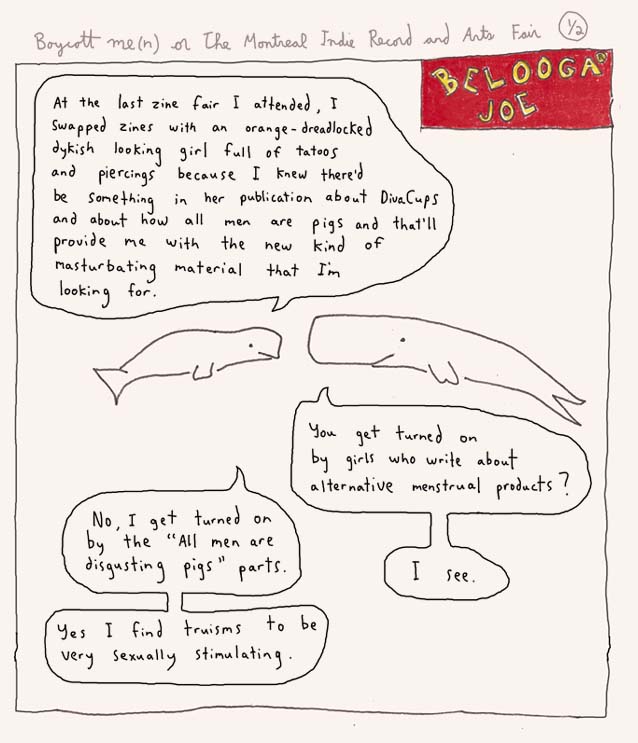 Boycott me(n) or The Montreal Indie Record and Arts Fair 1/2
BELOOGA
JOE
At the last zine fair I attended, I
swapped zines with an orange-dreadlocked
dykish looking girl full of tatoos
and piercings because I knew there'd
be something in her publication about DivaCups
and about how all men are pigs and that'll
provide me with the new kind of
masturbating material that I'm
looking for.
You get turned on
by girls who write about
alternative menstrual products?
No, I get turned on
by the "All men are
disgusting pigs" parts.
I see.
Yes I find truisms to be
very sexually stimulating.